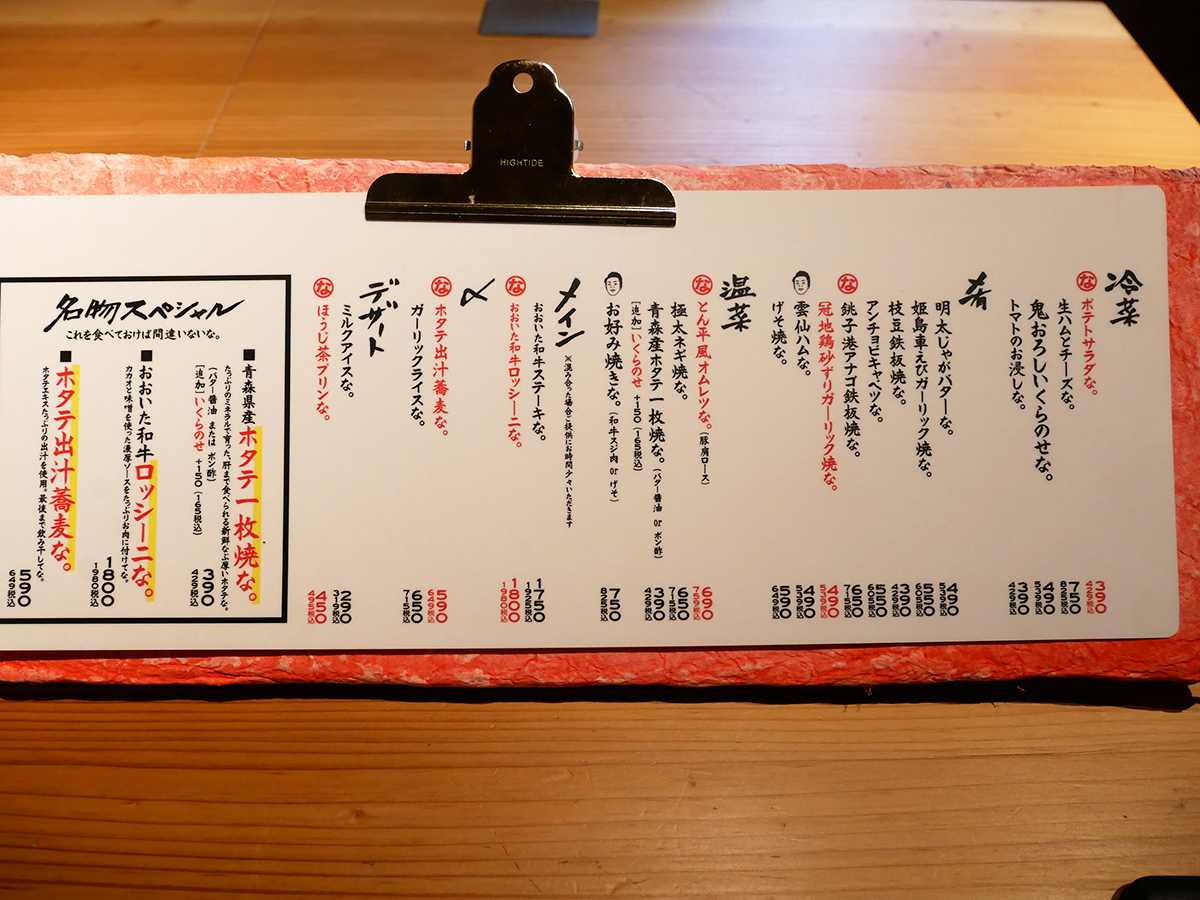 HIGHTIDE
冷菜
な ポテトサラダな。 390 429税込
生ハムとチーズな。 750 825税込
鬼おろしいくらのせな。 490 539税込
トマトのお浸しな。 390 429税込
肴
明太じゃがバターな。 490 539税込
姫島車えびガーリック焼な。 550 605税込
枝豆鉄板焼な。 390 429税込
アンチョビキャベツな。 550 605税込
な 銚子港アナゴ鉄板焼な。 650 715税込
冠地鶏砂ずりガーリック焼な。 490 539税込
雲仙ハムな。 490 539税込
げそ焼な。 590 649税込
温菜
な とん平風オムレツな。(豚肩ロース) 690 759税込
極太ネギ焼な。 650 715税込
青森産ホタテ一枚焼な。(バター醤油 or ポン酢) 390 429税込
[追加]いくらのせ +150(165税込)
お好み焼きな。(和牛スジ肉 or げそ) 750 825税込
メイン ※混み合った場合ご提供にお時間少々いただきます
おおいた和牛ステーキな。 1750 1925税込
な おおいた和牛ロッシーニな。 1800 1980税込
〆
な ホタテ出汁蕎麦な。 590 649税込
ガーリックライスな。 650 715税込
デザート
ミルクアイスな。 290 319税込
な ほうじ茶プリンな。 450 495税込
名物スペシャル
これを食べておけば間違いないな。
■青森県産ホタテ一枚焼な。
たっぷりのミネラルで育った、肝まで食べられる新鮮なぶ厚いホタテな。
(バター醤油 または ポン酢) 390 429税込
[追加]いくらのせ +150(165税込)
■おおいた和牛ロッシーニな。
カカオと味噌を使った濃厚ソースをたっぷりお肉に付けてな。 1800 1980税込
■ホタテ出汁蕎麦な。
ホタテエキスたっぷりの出汁を使用。最後まで飲み干してな。 590 649税込